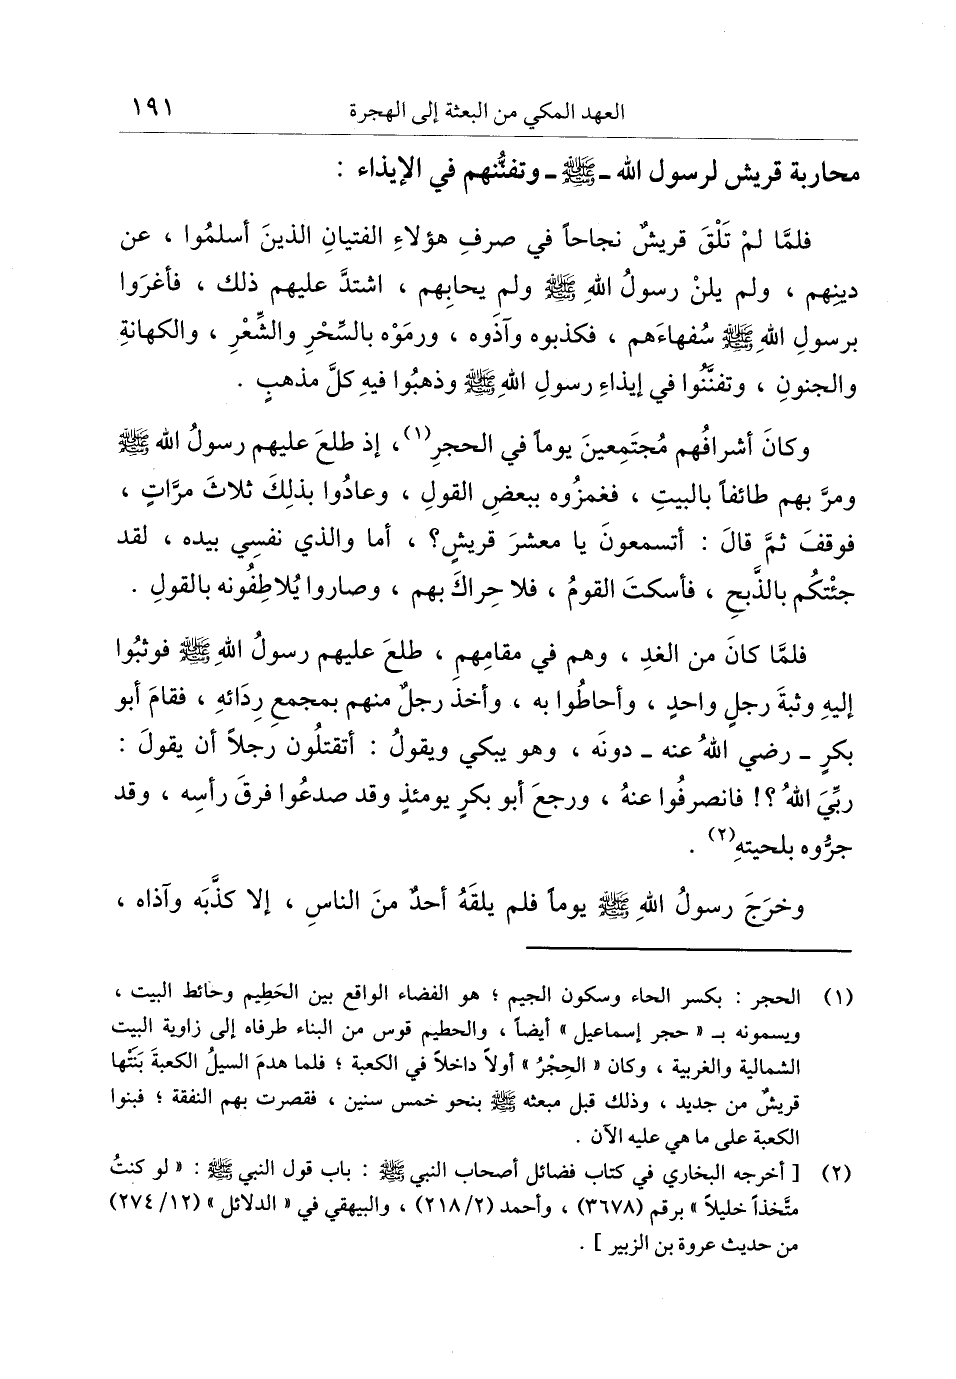 العهد المكي من البعثة إلى الهجرة ١٩١
محاربة قريش لرسول الله ـ ﷺ ـ وتفنُّنهم في الإيذاء :
فلمَّا لمْ تَلْقَ قريشٌ نجاحاً في صرفِ هؤلاءِ الفتيانِ الذينَ أسلمُوا ، عن
دينِهم ، ولم يلنْ رسولُ اللهِ ﷺ ولم يحابِهم ، اشتدَّ عليهم ذلك ، فأغرَوا
برسولِ اللهِ ﷺ سُفهاءَهم ، فكذبوه وآذَوه ، ورمَوْه بالسِّحْرِ والشِّعْرِ ، والكهانةِ
والجنونِ ، وتفنَّنُوا في إيذاءِ رسولِ اللهِ ﷺ وذهبُوا فيهِ كلَّ مذهبٍ .
وكانَ أشرافُهم مُجتَمِعينَ يوماً في الحجرِ(١)، إذ طلعَ عليهم رسولُ الله ﷺ
ومرَّ بهم طائفاً بالبيتِ ، فغمزُوه ببعضِ القولِ ، وعادُوا بذلِكَ ثلاثَ مرَّاتٍ ،
فوقفَ ثمَّ قالَ : أتسمعونَ يا معشرَ قريشٍ؟ ، أما والذي نفسِي بيده ، لقد
جئْتكُم بالذَّبحِ ، فأسكتَ القومُ ، فلا حِراكَ بهم ، وصاروا يُلاطِفُونه بالقولِ .
فلمَّا كانَ من الغدِ ، وهم في مقامِهم ، طلعَ عليهم رسولُ اللهِ ﷺ فوثبُوا
إليهِ وثبةَ رجلٍ واحدٍ ، وأحاطُوا به ، وأخذَ رجلٌ منهم بمجمعِ رِدَائهِ ، فقامَ أبو
بكرٍ ـ رضي اللهُ عنه ـ دونَه ، وهو يبكي ويقولُ : أتقتلُون رجلاً أن يقولَ :
ربِّيَ اللهُ؟! فانصرفُوا عنهُ ، ورجعَ أبو بكرٍ يومئذٍ وقد صدعُوا فرقَ رأسِه ، وقد
جرُّوه بلحيتهِ(٢) .
وخرَجَ رسولُ اللهِ ﷺ يوماً فلم يلقَهُ أحدٌ منَ الناسِ ، إلا كذَّبَه وآذاه ،
(١) الحجر : بكسر الحاء وسكون الجيم ؛ هو الفضاء الواقع بين الحَطِيم وحائط البيت ،
ويسمونه بـ « حجر إسماعيل » أيضاً ، والحطيم قوس من البناء طرفاه إلى زاوية البيت
الشمالية والغربية ، وكان « الحِجْرُ » أولاً داخلاً في الكعبة ؛ فلما هدمَ السيلُ الكعبةَ بَنَتْها
قريشٌ من جديد ، وذلك قبل مبعثه ﷺ بنحو خمس سنين ، فقصرت بهم النفقة ؛ فبنوا
الكعبة على ما هي عليه الآن .
(٢) [ أخرجه البخاري في كتاب فضائل أصحاب النبي ﷺ : باب قول النبي ﷺ : « لو كنتُ
متَّخذاً خليلاً » برقم (٣٦٧٨) ، وأحمد (٢١٨/٢) ، والبيهقي في « الدلائل » (٢٧٤/١٢)
من حديث عروة بن الزبير ] .